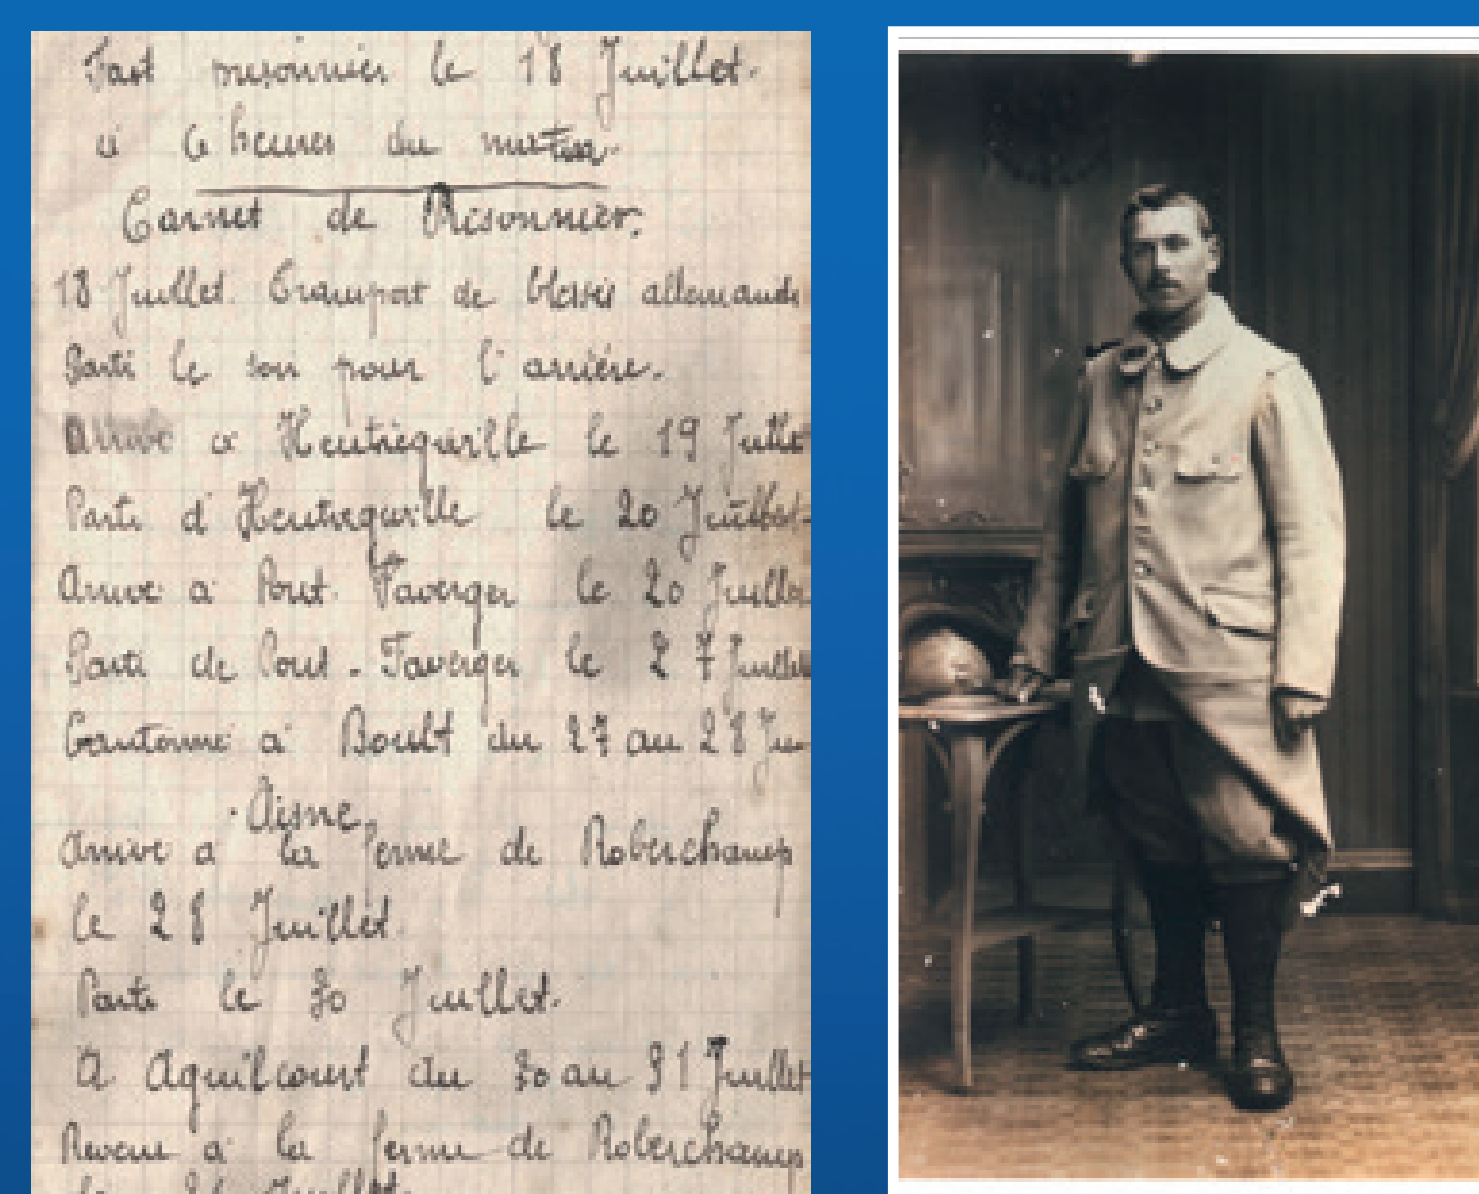 Fait prisonnier le 18 Juillet.
à 6 heures du matin.
Carnet de Prisonnier.
18 Juillet. Transport de blessés allemands
Parti le soir pour l'arrière.
Arrivé à Heutregiville le 19 Juillet
Parti d'Heutregiville le 20 Juillet.
Arrivé à Pont Faverger le 20 Juillet
Parti de Pont-Faverger le 27 Juillet
Cantonné à Boult du 27 au 28 Jui
Aisne
Arrivé à la ferme de Roberchamp
le 28 Juillet.
Parti le 30 Juillet.
A Aguilcourt du 30 au 31 Juillet
Revenu à la ferme de Roberchamp
le 31 Juillet.